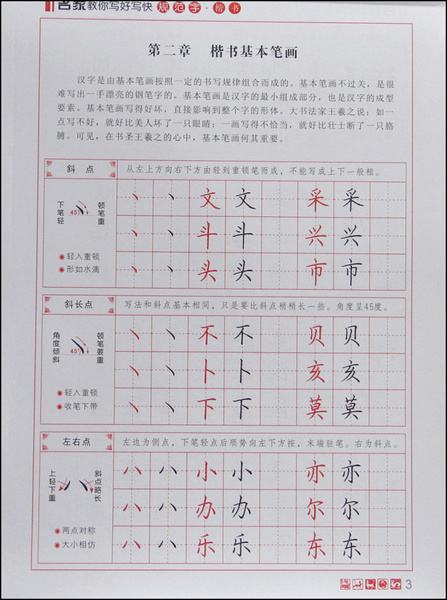 名家教你写好写快 规范字·楷书
第二章 楷书基本笔画
汉字是由基本笔画按照一定的书写规律组合而成的。基本笔画不过关，是很
难写出一手漂亮的钢笔字的。基本笔画是汉字的最小组成部分，也是汉字的成型
要素。基本笔画写得好坏，直接影响到整个字的形体。大书法家王羲之说：如一
点写不好，就好比美人坏了一只眼睛；一画写得不恰当，就好比壮士断了一只胳
膊。可见，在书圣王羲之的心中，基本笔画何其重要。
斜 点
从左上方向右下方由轻到重顿笔而成，不能写成上下一般粗。
下笔轻
45°
顿笔重
轻入重顿
形如水滴
文 文 采 采
斗 斗 兴 兴
头 头 市 市
斜长点
写法和斜点基本相同，只是要比斜点稍稍长一些。角度呈45度。
角度倾斜
45°
顿笔要重
轻入重顿
收笔下带
不 不 贝 贝
卜 卜 亥 亥
下 下 莫 莫
左右点
左边为侧点，下笔轻点后顺势向左下方按，末端驻笔。右为斜点。
上轻下重
斜点略长
两点对称
大小相仿
小 小 亦 亦
办 办 尔 尔
乐 乐 东 东
3